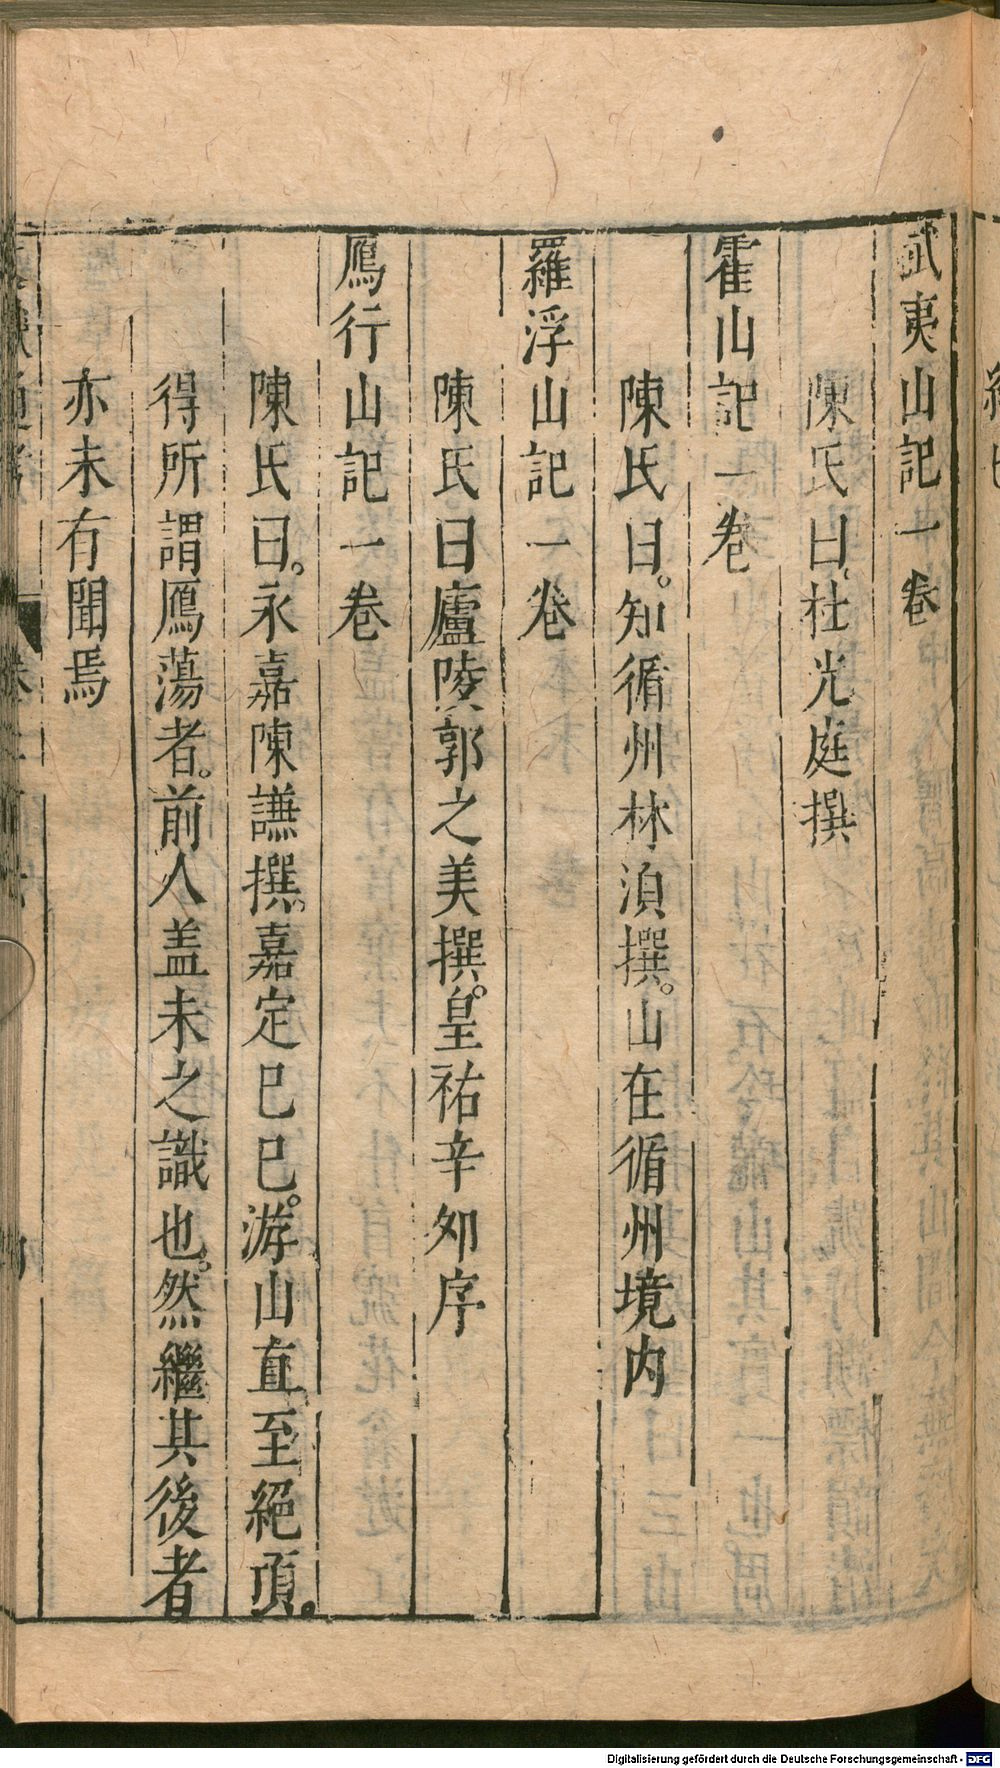 武夷山記一卷
陳氏曰。杜光庭撰
霍山記一卷
陳氏曰。知循州林須撰。山在循州境内
羅浮山記一卷
陳氏曰廬陵郭之美撰。皇祐辛夘序
鴈行山記一卷
陳氏曰。永嘉陳謙撰。嘉定巳巳。游山直至絕頂。
得所謂鴈蕩者。前人盖未之識也。然繼其後者
亦未有聞焉
Digitalisierung gefördert durch die Deutsche Forschungsgemeinschaft - DFG